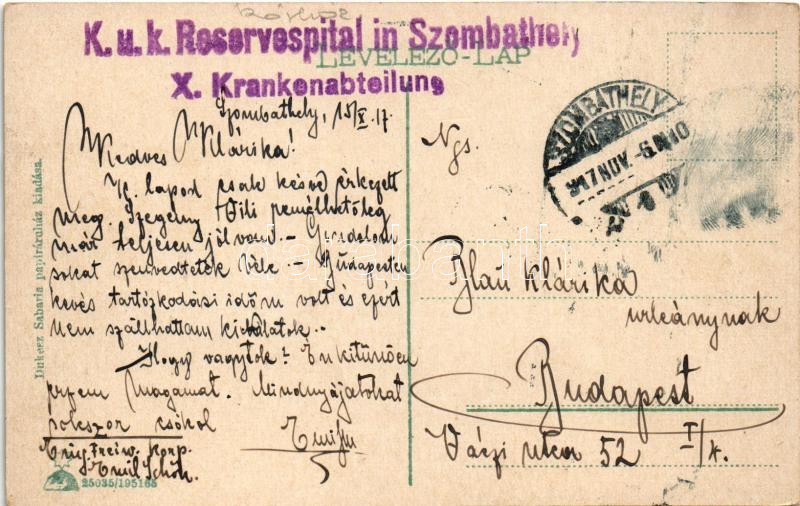 kórház
K. u. k. Reservespital in Szombathely
LEVELEZŐ-LAP
X. Krankenabteilung
Szombathely, 15/V. 17.
Kedves Klárika!
lapod csak késve érkezett
meg. Szegény Vili remélhetőleg
már teljesen jól van. – Gondolom
sokat szenvedtetek vele – Budapesten
kevés tartózkodási időm volt és ezért
nem szállhattam ki hálatok..
Hogy vagytok? Én kitünően
érzem magamat. Mindnyájatokat
sokszor csókol
Freiw. Korp.
Emil
Ngs.
Blau Klárika
urleánynak
Budapest
Váczi utca 52 I/
SZOMBATHELY
Dukesz Sabaria papíráruház kiadása.
25035/195165
darabanth